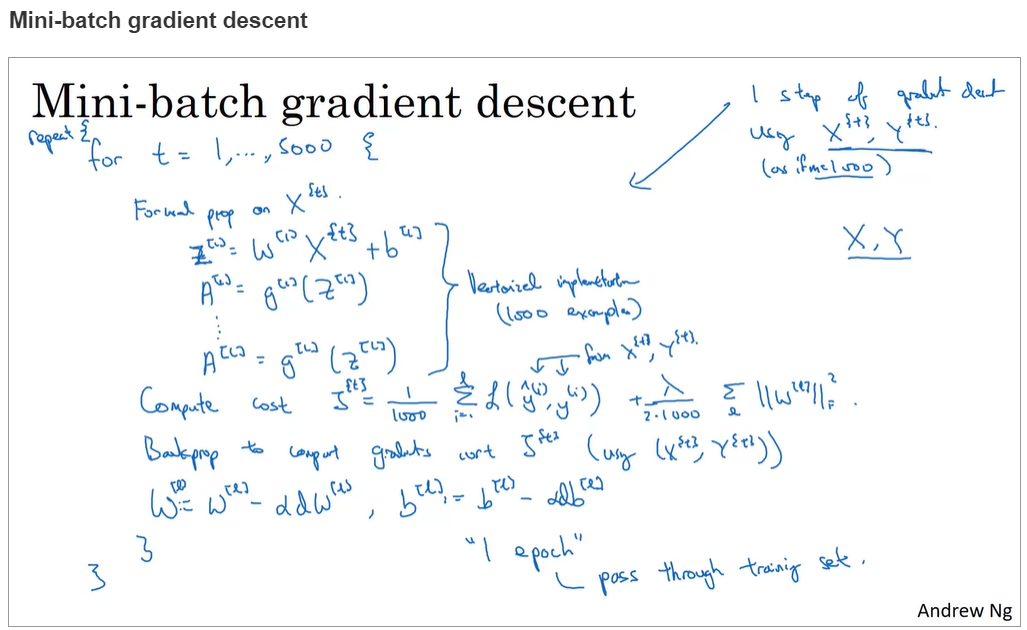 Mini-batch gradient descent
Mini-batch gradient descent
1 step of gradient descent
using X^{t}, Y^{t}.
(as if m=1000)
repeat {
for t = 1,..., 5000 {
X, Y
Forward prop on X^{t}.
Z^[1] = W^[1] X^{t} + b^[1]
A^[1] = g^[1](Z^[1])
⋮
A^[L] = g^[L](Z^[L])
Vectorized implementation
(1000 examples)
from X^{t}, Y^{t}.
Compute cost J^{t} = 1/1000 Σ_{i=1}^{l} L(ŷ^(i), y^(i)) + λ/(2·1000) Σ_l ||W^[l]||_F^2.
Backprop to compute gradients wrt J^{t} (using (X^{t}, Y^{t}))
W^[l] := W^[l] - αdW^[l], b^[l] := b^[l] - αdb^[l]
}
}
"1 epoch"
pass through training set.
Andrew Ng